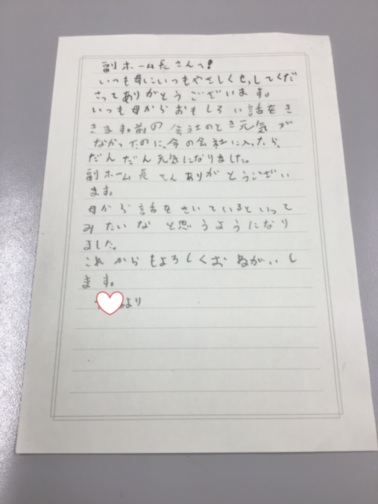 副ホーム長さんへ!
いつも母にいつもやさしくせっしてくだ
さってありがとうございます。
いつも母からおもしろい話をき
きます。前の会社のとき元気が
なかったのに、今の会社に入ったら
だんだん元気になりました。
副ホーム長さんありがとうござい
ます。
母から話をきいているといって
みたいなと思うようになり
ました。
これからもよろしくおねがいし
ます。
より